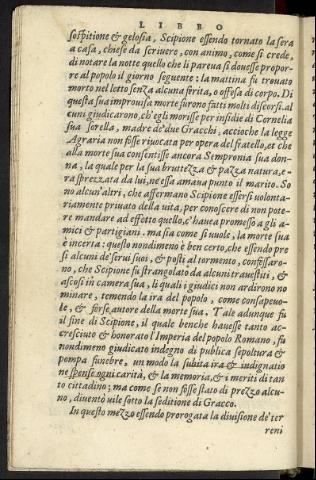 LIBRO
sospitione & gelosia, Scipione essendo tornato la sera
a casa, chiese da scriuere, con animo, come si crede,
di notare la notte quello che li pareua si douesse propor-
re al popolo il giorno seguente: la mattina fu trouato
morto nel letto senza alcuna ferita, o offesa di corpo. Di
questa sua improuisa morte furono fatti molti discorsi. al
cuni giudicarono, ch'egli morisse per insidie di Cornelia
sua sorella, madre de' due Gracchi, accioche la legge
Agraria non fosse riuocata per opera del fratello, et che
alla morte sua consentisse ancora Sempronia sua don-
na, la quale per la sua bruttezza & pazza natura, e-
ra sprezzata da lui, ne essa amaua punto il marito. So
no alcun'altri, che affermano Scipione essersi volonta-
riamente priuato della uita, per conoscere di non pote-
re mandare ad effetto quello, c'haueа promesso a gli a-
mici & partigiani. ma sia come si uuole, la morte sua
è incerta: questo nondimeno è ben certo, che essendo pre
si alcuni de' serui suoi, & posti al tormento, confessaro-
no, che Scipione fu strangolato da alcuni trauestiti, &
ascosi in camera sua, li quali i giudici non ardirono no
minare, temendo la ira del popolo, come consapeuo-
le, & forse autore della morte sua. Tale adunque fu
il fine di Scipione, il quale benche hauesse tanto ac-
cresciuto & honorato l'Imperio del popolo Romano, fu
nondimeno giudicato indegno di publica sepoltura &
pompa funebre, un modo la subita ira & indignatio
ne spense ogni carità, & la memoria, & i meriti di tan
to cittadino; ma come se non fosse stato di prezzo alcu-
no, diuentò uile sotto la seditione di Gracco.
In questo mezzo essendo prorogata la diuisione de' ter
reni